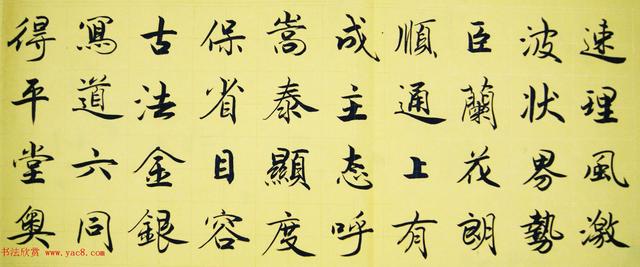 速理風激
波狀界勢
臣蘭花朗
順通上有
成主态呼
嵩泰顯度
保省目容
古法金銀
寫道六同
得平堂奥
书法欣赏 www.yac8.com